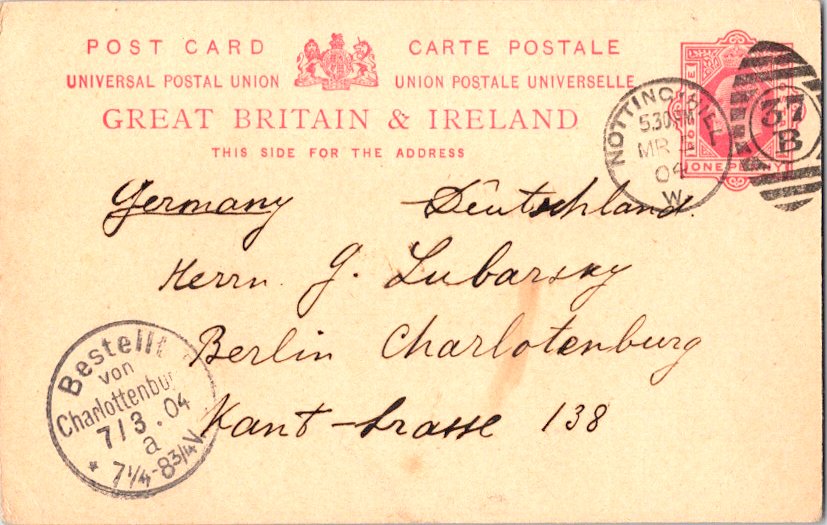 POST CARD CARTE POSTALE
UNIVERSAL POSTAL UNION UNION POSTALE UNIVERSELLE
GREAT BRITAIN & IRELAND
THIS SIDE FOR THE ADDRESS
ONE PENNY
NOTTING-HILL
5.30PM
MR
04
W.
37
B
Germany Deutschland.
Herrn J. Lubarsky
Berlin Charlotenburg
Kant-strasse 138
Bestellt
von
Charlottenbur
7/3.04
a
* 7¼-8¾V